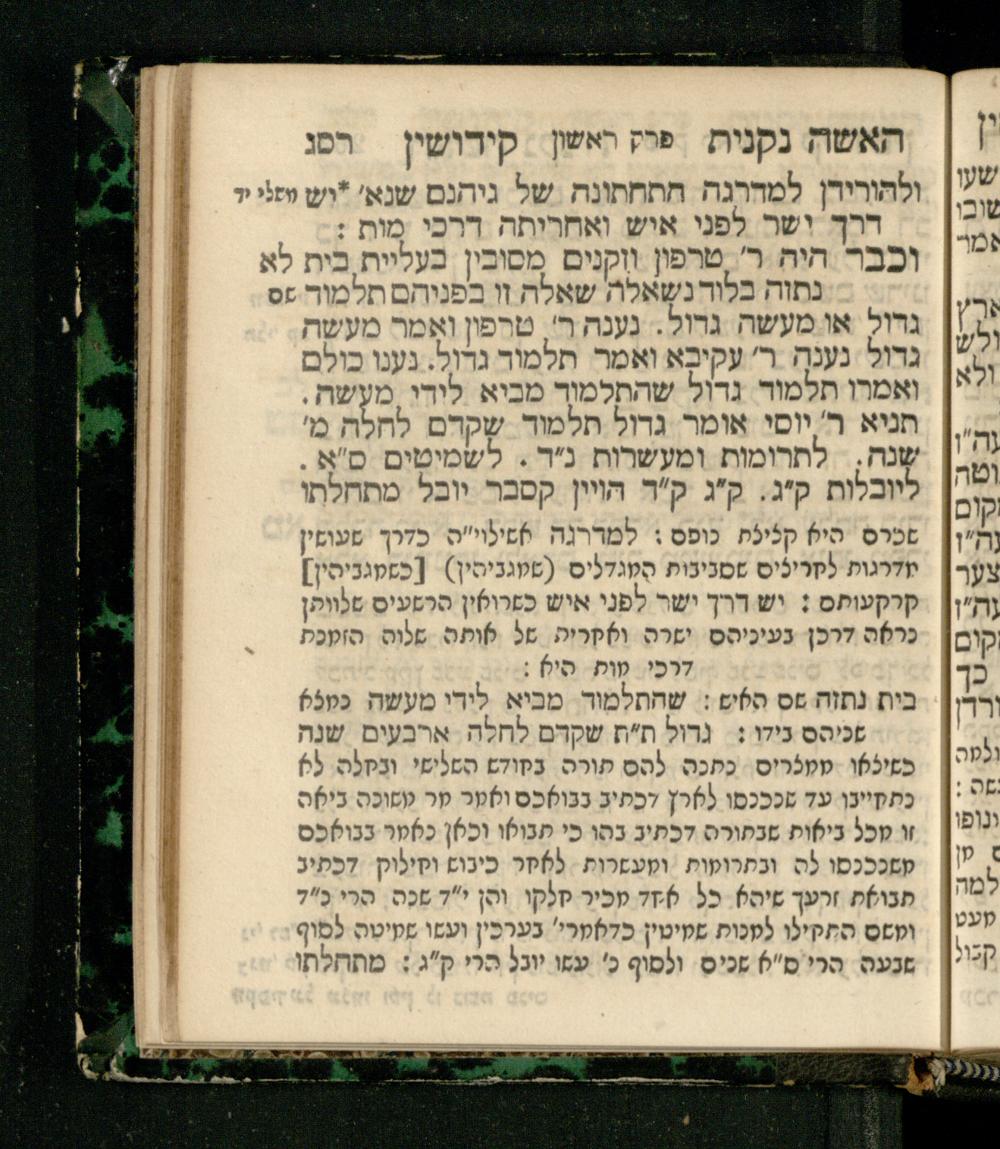 האשה נקנית פרק ראשון קידושין רסג
ולהורידן למדרגה התחתונה של גיהנם שנא׳ *יש משלי יד
דרך ישר לפני איש ואחריתה דרכי מות :
וכבר היה ר׳ טרפון וזקנים מסובין בעליית בית לא
נתוה בלוד נשאלה שאלה זו בפניהם תלמוד שם
גדול או מעשה גדול. נענה ר׳ טרפון ואמר מעשה
גדול נענה ר׳ עקיבא ואמר תלמוד גדול. נענו כולם
ואמרו תלמוד גדול שהתלמוד מביא לידי מעשה.
תניא ר׳ יוסי אומר גדול תלמוד שקדם לחלה מ׳
שנה. לתרומות ומעשרות נ״ד. לשמיטים ס״א.
ליובלות ק״ג. ק״ג ק״ד הויין קסבר יובל מתחלתו
שכרס היא קליפת כופס : למדרגה אשילוי״ה כדרך שעושין
מדרגות לחריצים שסביבות המגדלים (שמגביהין) [כשמגביהין]
קרקעותם : יש דרך ישר לפני איש כשרואין הרשעים שלוותן
נראה דרכן בעיניהם ישרה ואחרית של אותה שלוה הזמנת
דרכי מות היא :
בית נתזה שם האיש : שהתלמוד מביא לידי מעשה נמצא
שניהם בידו : גדול ת״ת שקדם לחלה ארבעים שנה
כשיצאו ממצרים נתנה להם תורה בחודש השלישי ובחלה לא
נתחייבו עד שנכנסו לארץ דכתיב בבואכם ואמר מר משונה ביאה
זו מכל ביאות שבתורה דכתיב בהו כי תבואו וכאן נאמר בבואכם
משנכנסו לה ובתרומות ומעשרות לאחר כיבוש וחילוק דכתיב
תבואת זרעך שיהא כל אחד מכיר חלקו והן י״ד שנה הרי נ״ד
ומשם התחילו למנות שמיטין כדאמרי׳ בערכין ועשו שמיטה לסוף
שבעה הרי ס״א שנים ולסוף נ׳ עשו יובל הרי ק״ג : מתחלתו